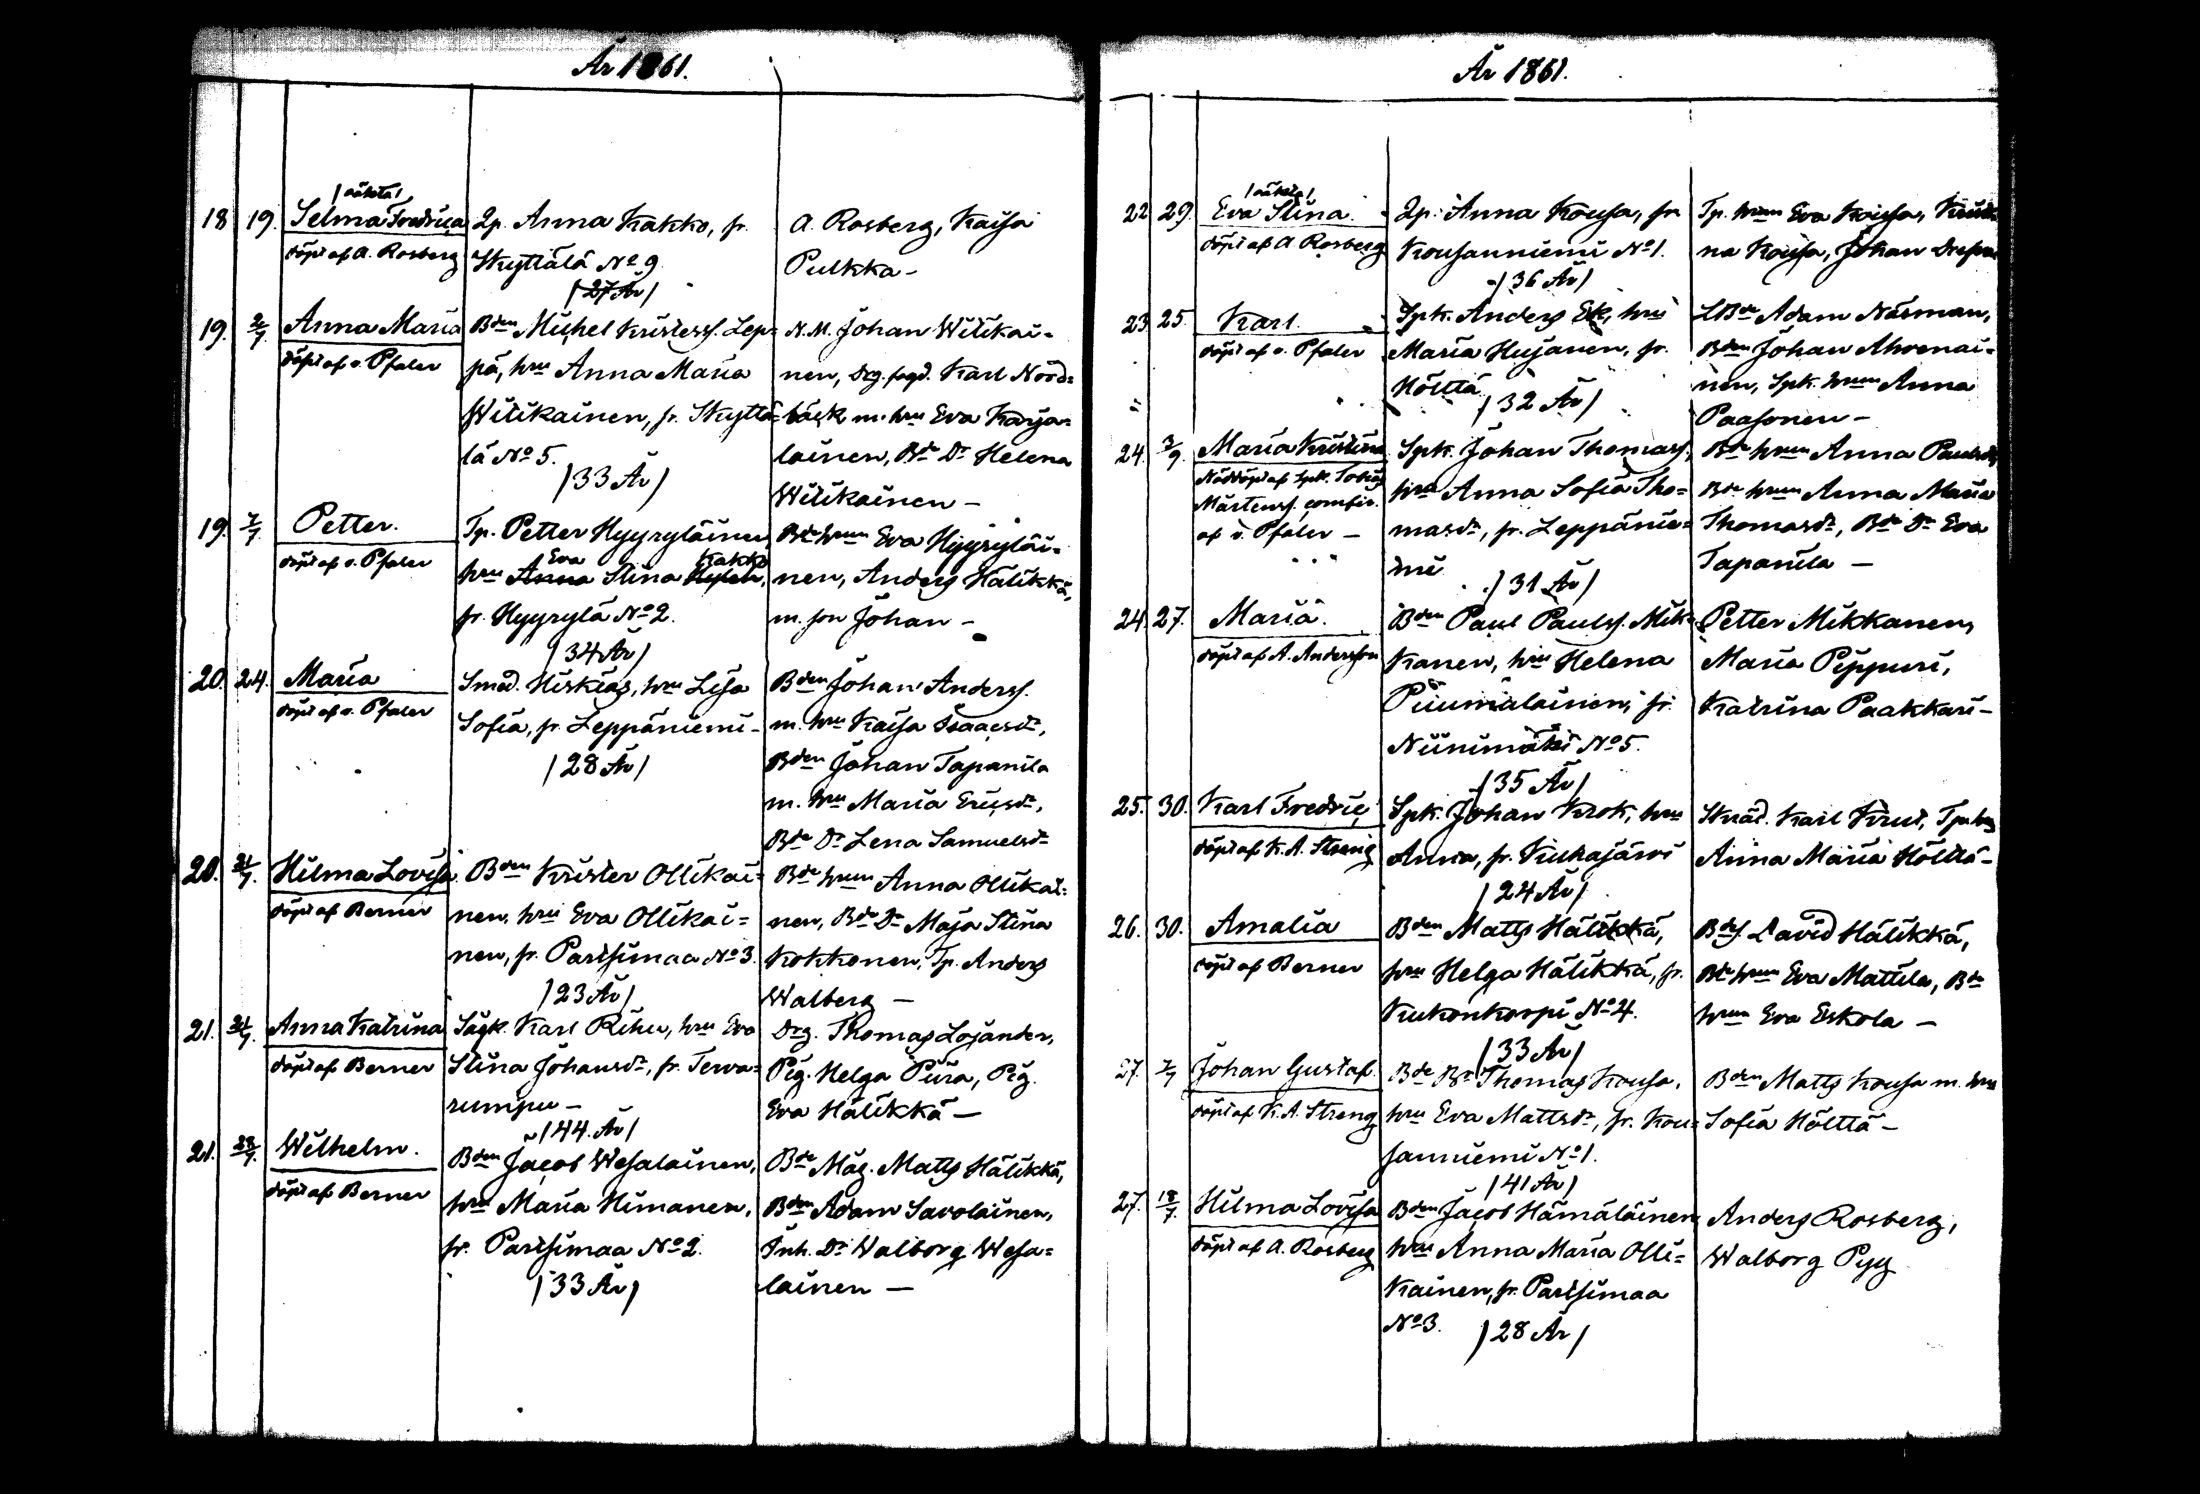 År 1861.
18 19. /oäkta/
Selma Fredrica
döpt af A. Rosberg
Qp. Anna Kakko, fr.
Skyttälä No 9
/27 År/
A. Rosberg, Kaisa
Pulkka –
19. 2/7 Anna Maria
döpt af v. Pfaler
Bden Michel Kristerss. Lep-
pä, hru Anna Maria
Witikainen, fr. Skyttä-
lä No 5.
/33 År/
N.M. Johan Witikai-
nen, Drg. fogd. Karl Nord-
bäck m. hru Eva Karja-
lainen, Bde Dr Helena
Witikainen –
19. 7/7 Petter.
döpt af v. Pfaler
Tp. Petter Hyyryläinen
hru Anna Eva Stina Kakko,
fr. Hyyrylä No 2.
/34 År/
Bde hrun Eva Hyyryläi-
nen, Anders Hälikkä,
m. son Johan –
20. 24. Maria
döpt af v. Pfaler
Smed. Hiskias, hru Lisa
Sofia, fr. Leppäniemi –
/28 År/
Bden Johan Anderss.
m. hru Kaisa Isaacsdr,
Bden Johan Tapanila
m. hru Maria Ericsdr,
Bde Dr Lena Samuelsdr
20. 21/7. Hilma Lovisa
döpt af Berner
Bden Krister Ollikai-
nen, hru Eva Ollikai-
nen, fr. Partsimaa No 3.
/23 År/
Bde hrun Anna Ollikai-
nen, Bde Dr Maja Stina
Kokkonen, Tp. Anders
Walberg –
21. 21/7. Anna Katrina
döpt af Berner
Sågk. Karl Rihu, hru Eva
Stina Johansdr, fr. Terva-
rumpu –
/44 År/
Drg. Thomas Lojander,
Pig. Helga Piira, Pig.
Eva Hälikkä –
21. 28/7. Wilhelm.
döpt af Berner
Bden Jacob Wesalainen,
hru Maria Himanen,
fr. Partsimaa No 2.
/33 År/
Bde Måg. Matts Hälikkä,
Bden Adam Savolainen,
Inh. Dr Walborg Wesa-
lainen –
År 1861.
22 29. /oäkta/
Eva Stina.
döpt af A Rosberg
Qp. Anna Kousa, fr.
Kousanniemi No 1.
/36 År/
Tp. hrun Eva Kousa, Kristi-
na Kousa, Johan
23 25. Karl.
döpt af v. Pfaler
Spk. Anders Ek, hru
Maria Hujanen, fr.
Hölttä
/32 År/
LBde Adam Närman,
Bden Johan Ahvenai-
nen, Spk. hrun Anna
Paasonen –
24. 3/9. Maria Kristina
Nöddöpt af Spk. Tobias
Mårtenss. comfir.
af v. Pfaler –
Spk. Johan Thomass,
hru Anna Sofia Tho-
masdr, fr. Leppänie-
mi
/31 År/
Bde hrun Anna Paulsdr,
Bde hrun Anna Maria
Thomasdr, Bde Dr Eva
Tapanila –
24. 27. Maria.
döpt af A. Andersson
Bden Paul Paulss. Mik-
kanen, hru Helena
Piiumalainen, fr.
Niinimäki No 5.
/35 År/
Petter Mikkanen,
Maria Pippuri,
Katrina Paakkari –
25. 30. Karl Fredric
döpt af K. A. Streng
Spk. Johan Krok, hru
Anna, fr. Kiukajärvi
/24 År/
Skräd. Karl Krut,
Anna Maria Hölttä –
26. 30. Amalia
döpt af Berner
Bden Matts Hälikkä,
hru Helga Hälikkä, fr.
Kukonkorpi No 4.
/33 År/
Bdes. David Hälikkä,
Bde hrun Eva Mattila, Bde
hrun Eva Eskola –
27. 7/7 Johan Gustaf.
döpt af K. A. Streng
Bde Br Thomas Kousa,
hru Eva Mattsdr, fr. Kou-
sanniemi No 1.
/41 År/
Bden Matts Kousa m. hru
Sofia Hölttä –
27. 18/7. Hilma Lovisa
döpt af A. Rosberg
Bden Jacob Hämäläinen
hru Anna Maria Olli-
kainen, fr. Partsimaa
No 3. /28 År/
Anders Rosberg,
Walborg Pyy